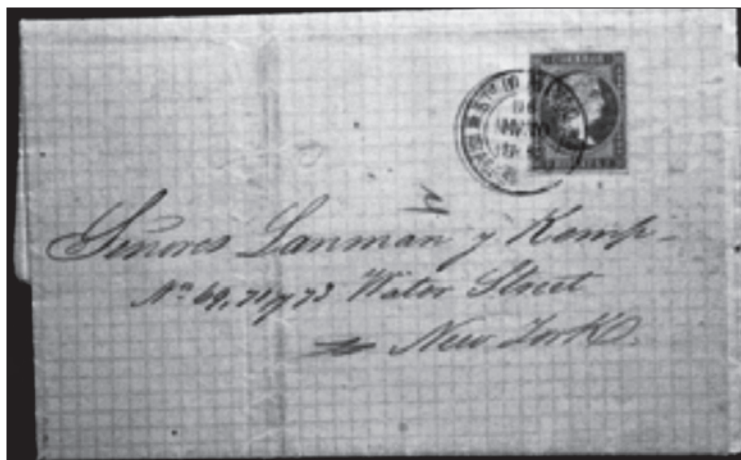 Señores Lanman y Kemp
Nº 69, 71 y 73 Water Street
New York